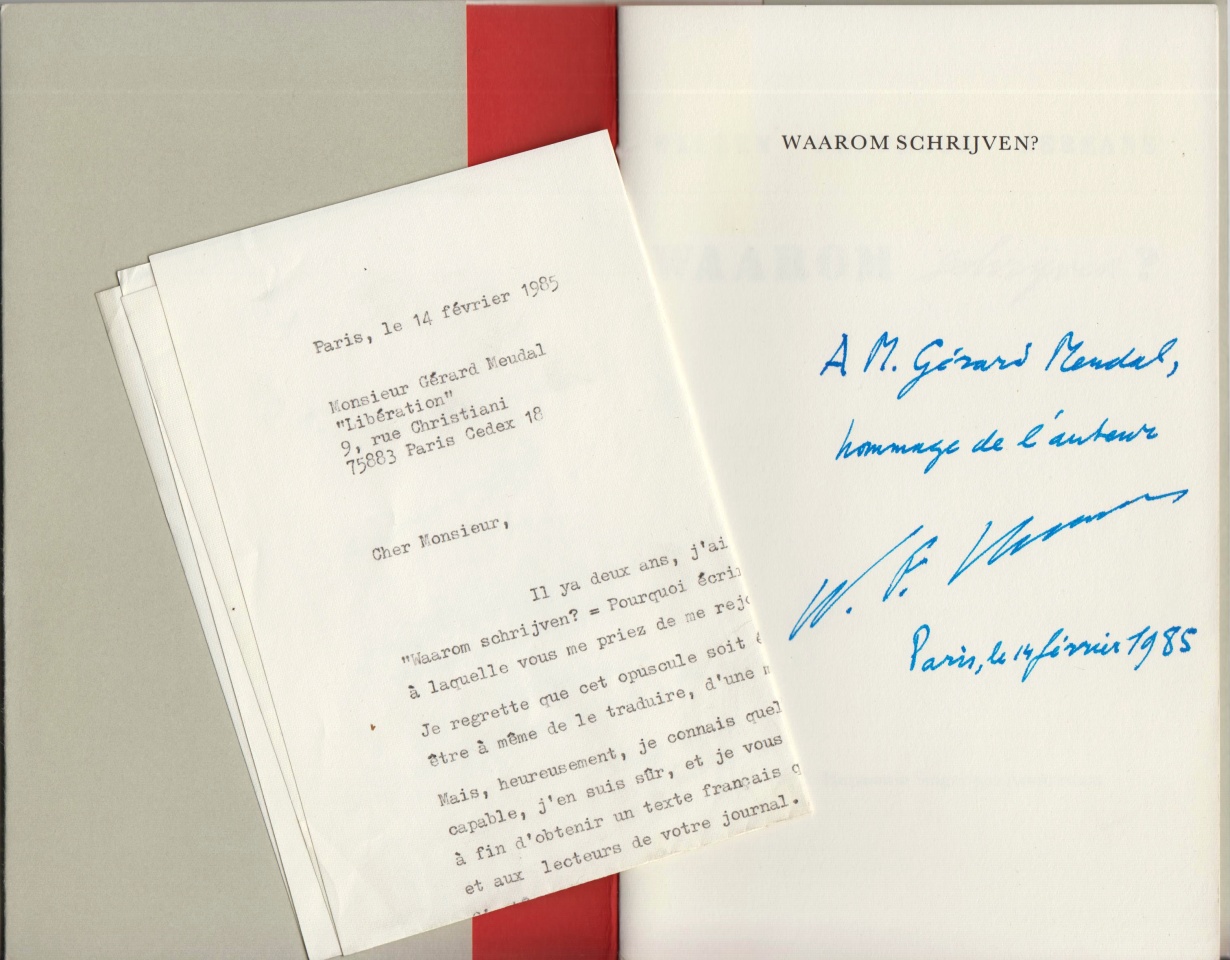 Paris, le 14 février 1985
Monsieur Gérard Meudal
"Libération"
9, rue Christiani
75883 Paris Cedex 18
Cher Monsieur,
Il ya deux ans, j'ai
"Waarom schrijven? = Pourquoi écri
à laquelle vous me priez de me rej
Je regrette que cet opuscule soit
être à même de le traduire, d'une
Mais, heureusement, je connais quel
capable, j'en suis sûr, et je vous
à fin d'obtenir un texte français q
et aux lecteurs de votre journal.
WAAROM SCHRIJVEN?
A M. Gérard Meudal,
hommage de l'auteur
W. F.
Paris, le 14 février 1985